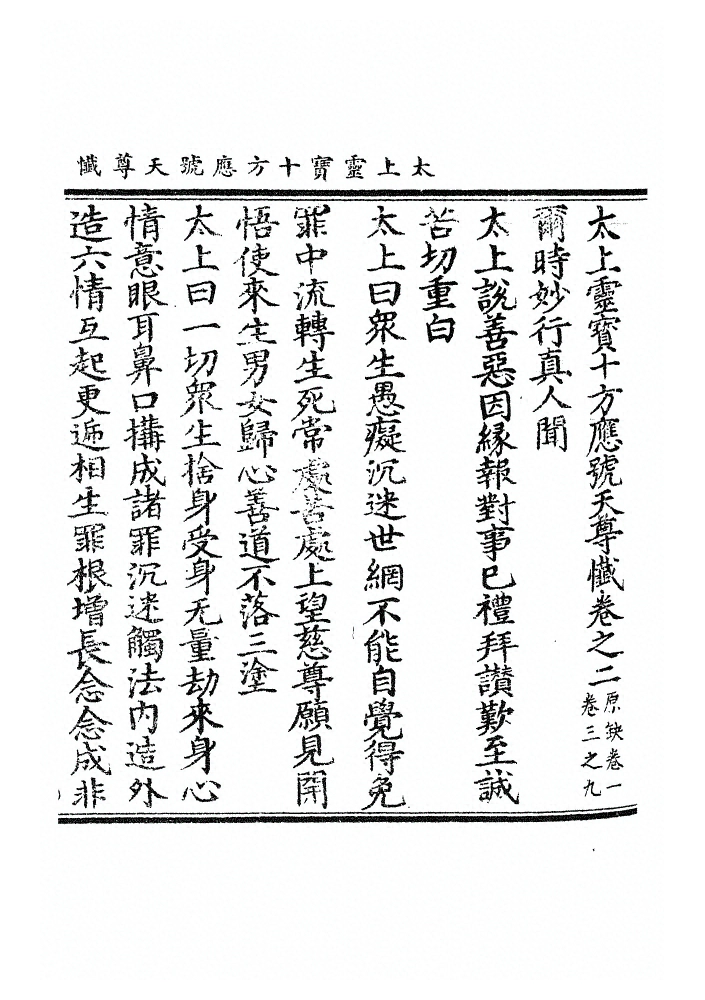 太上靈寶十方應號天尊懺
太上靈寶十方應號天尊懺卷之二 原缺卷一
卷三之九
爾時妙行真人聞
太上說善惡因緣報對事已禮拜讚歎至誠
苦切重白
太上曰衆生愚癡沉迷世網不能自覺得免
罪中流轉生死常處苦處上望慈尊願見開
悟使來生男女歸心善道不落三塗
太上曰一切衆生捨身受身无量劫來身心
情意眼耳鼻口搆成諸罪沉迷觸法内造外
造六情互起更遞相生罪根增長念念成非